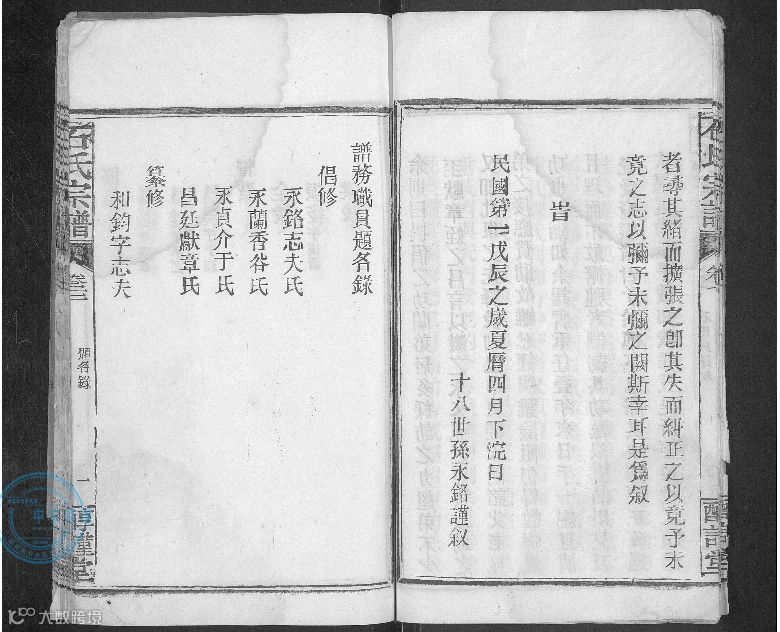 石氏宗譜
卷
者尋其緒而擴張之卽其失而糾正之以竟予未
竟之志以彌予未彌之闕斯幸耳是爲叙
旹
民國第一戊辰之歲夏曆四月下浣日
十八世孫永銘謹叙
譜務職員題名錄
倡修
永銘志夫氏
永蘭香谷氏
永貞介于氏
昌廷獻章氏
纂修
和鈞字志夫
石氏宗譜
卷三
題名錄
一
大数跨境